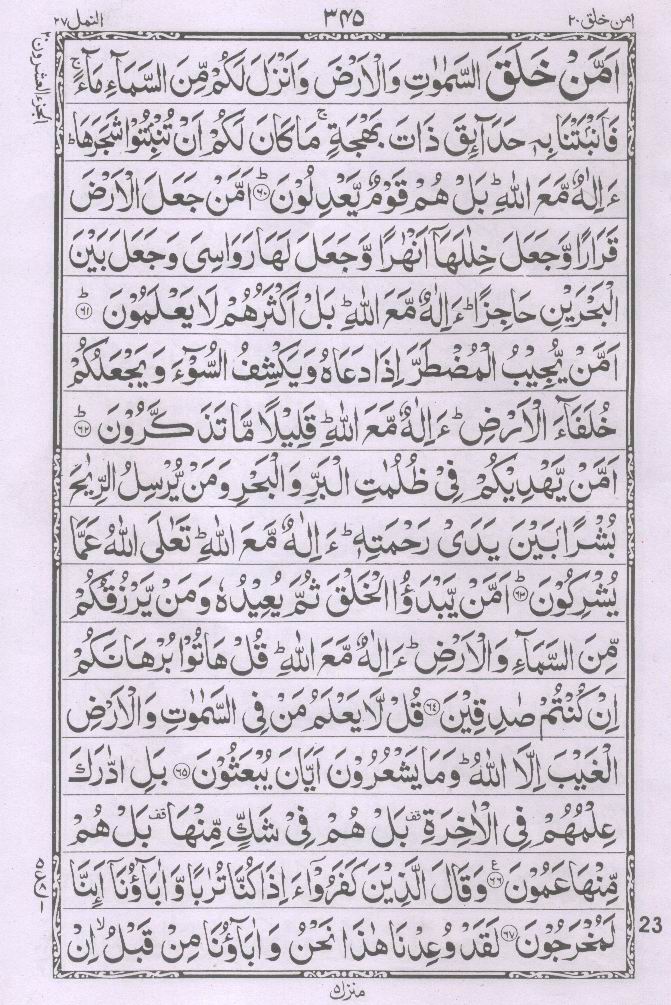 امن خلق ٢٠
٣٤٥
النمل ٢٧
الجزء العشرون
اَمَّنْ خَلَقَ السَّمٰوٰتِ وَالْاَرْضَ وَاَنْزَلَ لَكُمْ مِّنَ السَّمَآءِ مَآءً ۚ
فَاَنْۢبَتْنَا بِهٖ حَدَآئِقَ ذَاتَ بَهْجَةٍ ۚ مَا كَانَ لَكُمْ اَنْ تُنْۢبِتُوْا شَجَرَهَا ؕ
ءَاِلٰهٌ مَّعَ اللّٰهِ ؕ بَلْ هُمْ قَوْمٌ يَّعْدِلُوْنَ ؕ‏﴿۶۰﴾ اَمَّنْ جَعَلَ الْاَرْضَ
قَرَارًا وَّجَعَلَ خِلٰلَهَاۤ اَنْهٰرًا وَّجَعَلَ لَهَا رَوَاسِىَ وَجَعَلَ بَيْنَ
الْبَحْرَيْنِ حَاجِزًا ؕ ءَاِلٰهٌ مَّعَ اللّٰهِ ؕ بَلْ اَكْثَرُهُمْ لَا يَعْلَمُوْنَ ؕ‏﴿۶۱﴾
اَمَّنْ يُّجِيْبُ الْمُضْطَرَّ اِذَا دَعَاهُ وَيَكْشِفُ السُّوْٓءَ وَيَجْعَلُكُمْ
خُلَفَآءَ الْاَرْضِ ؕ ءَاِلٰهٌ مَّعَ اللّٰهِ ؕ قَلِيْلًا مَّا تَذَكَّرُوْنَ ؕ‏﴿۶۲﴾
اَمَّنْ يَّهْدِيْكُمْ فِىْ ظُلُمٰتِ الْبَرِّ وَالْبَحْرِ وَمَنْ يُّرْسِلُ الرِّيٰحَ
بُشْرًۢا بَيْنَ يَدَىْ رَحْمَتِهٖ ؕ ءَاِلٰهٌ مَّعَ اللّٰهِ ؕ تَعٰلَى اللّٰهُ عَمَّا
يُشْرِكُوْنَ ؕ‏﴿۶۳﴾ اَمَّنْ يَّبْدَؤُا الْخَلْقَ ثُمَّ يُعِيْدُهٗ وَمَنْ يَّرْزُقُكُمْ
مِّنَ السَّمَآءِ وَالْاَرْضِ ؕ ءَاِلٰهٌ مَّعَ اللّٰهِ ؕ قُلْ هَاتُوْا بُرْهَانَكُمْ
اِنْ كُنْتُمْ صٰدِقِيْنَ‏﴿۶۴﴾ قُلْ لَّا يَعْلَمُ مَنْ فِى السَّمٰوٰتِ وَالْاَرْضِ
الْغَيْبَ اِلَّا اللّٰهُ ؕ وَمَا يَشْعُرُوْنَ اَيَّانَ يُبْعَثُوْنَ‏﴿۶۵﴾ بَلِ ادّٰرَكَ
عِلْمُهُمْ فِى الْاٰخِرَةِ قف بَلْ هُمْ فِىْ شَكٍّ مِّنْهَا قف بَلْ هُمْ
مِّنْهَا عَمُوْنَ ع‏﴿۶۶﴾ وَقَالَ الَّذِيْنَ كَفَرُوْۤا ءَاِذَا كُنَّا تُرٰبًا وَّاٰبَآؤُنَاۤ اَئِنَّا
لَمُخْرَجُوْنَ‏﴿۶۷﴾ لَقَدْ وُعِدْنَا هٰذَا نَحْنُ وَاٰبَآؤُنَا مِنْ قَبْلُ ۙ اِنْ
23
منزل ۵